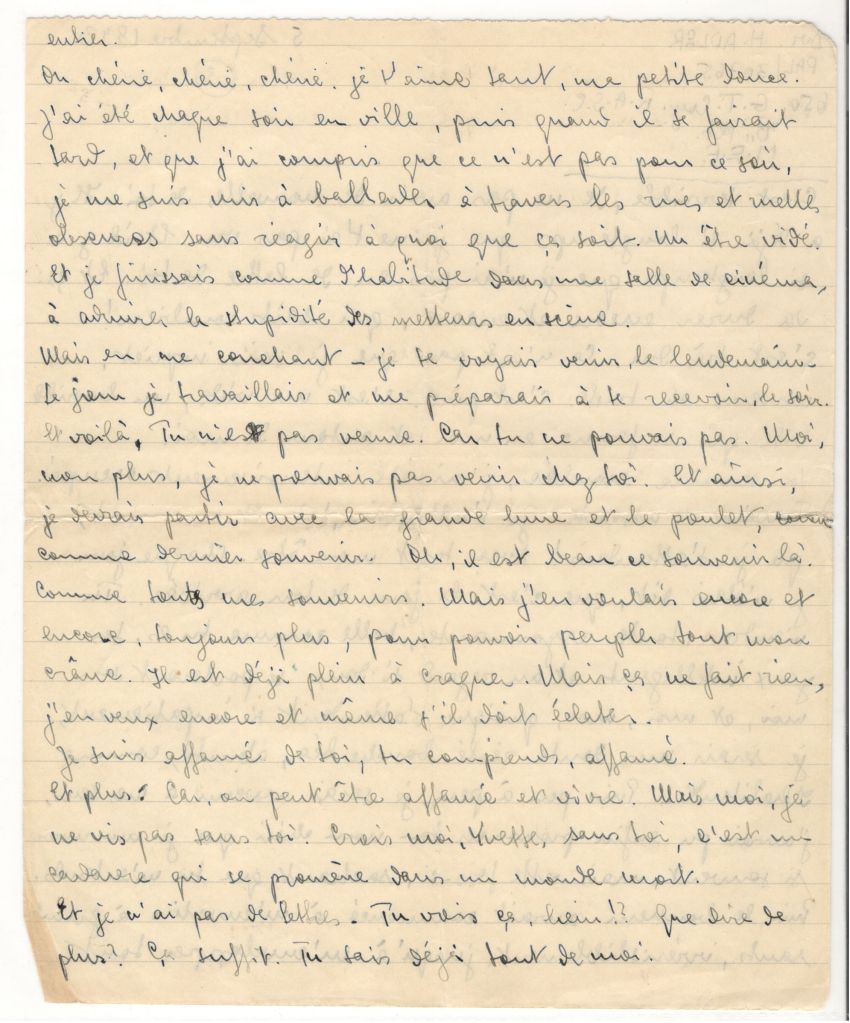 entier.
Oh chérie, chérie, chérie. je t'aime tant, ma petite douce.
J'ai été chaque soir en ville, puis quand il se faisait
tard, et que j'ai compris que ce n'est pas pour ce soir,
je me suis mis à ballader à travers les rues et ruelles
obscures sans réagir à quoi que ça soit. Un être vidé.
Et je finissais comme d'habitude dans une salle de cinéma,
à admirer la stupidité des metteurs en scène.
Mais en me couchant – je te voyais venir, le lendemain.
Le jour je travaillais et me préparais à te recevoir, le soir.
Et voilà, Tu n'es pas venue. Car tu ne pouvais pas. Moi,
non plus, je ne pouvais pas venir chez toi. Et ainsi,
je devrais partir avec la grande lune et le poulet,
comme dernier souvenir. Oh, il est beau ce souvenir là.
Comme touts mes souvenirs. Mais j'en voulais encore et
encore, toujours plus, pour pouvoir peupler tout mon
crâne. Il est déjà plein à craquer. Mais ça ne fait rien,
j'en veux encore et même s'il doit éclater.
Je suis affamé de toi, tu comprends, affamé.
Et plus: Car, on peut être affamé et vivre. Mais moi, je
ne vis pas sans toi. Crois moi, Yvette, sans toi, c'est un
cadavre qui se promène dans un monde mort.
Et je n'ai pas de lettres. Tu vois ça, hein!? Que dire de
plus? Ça suffit. Tu sais déjà tout de moi.